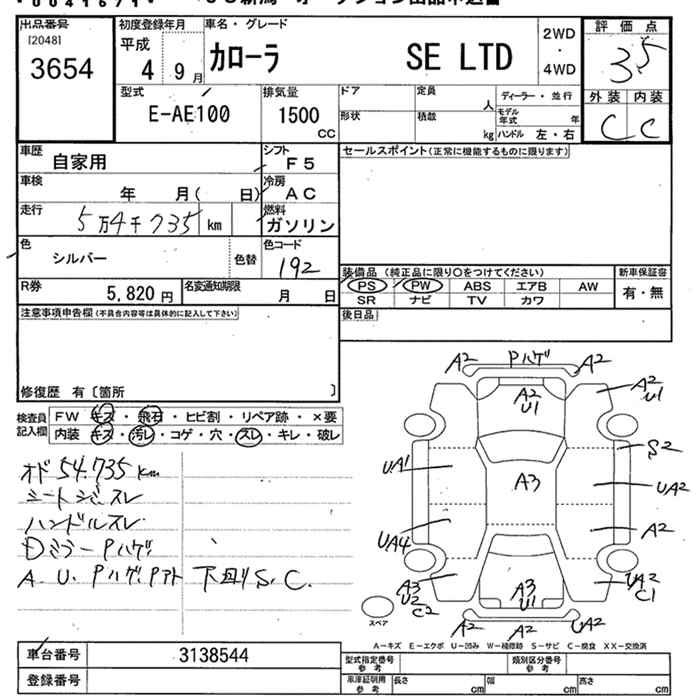 出品番号 初度登録年月 車名・グレード 2WD 評価点
[2048] 平成
3654 4 9月 カローラ SE LTD ・ 3.5
4WD
型式 排気量 ドア 定員 人 ディーラー・並行 外装 内装
E-AE100 1500 cc 形状 積載 kg モデル年式 年 C C
ハンドル 左・右
車歴 自家用 シフト F5 セールスポイント(正常に機能するものに限ります)
車検 年 月( 日) 冷房 AC
走行 5万4千735 km 燃料 ガソリン
色 シルバー 色替 色コード 192
装備品(純正品に限り○をつけてください) 新車保証書
PS PW ABS エアB AW 有・無
SR ナビ TV カワ
R券 5,820円 名変通知期限 月 日
注意事項申告欄(不具合内容等は具体的に記入して下さい) 後日品
修復歴 有〔箇所 〕
検査員 FW キズ・飛石・ヒビ割・リペア跡・×要
記入欄 内装 キズ・汚レ・コゲ・穴・スレ・キレ・破レ
オド 54.735 km
シートジミスレ
ハンドルスレ
Dミラー Pハゲ
A.U.PハゲPアト 下廻りS.C.
A2 Pハゲ A2
A2 U1 A2 U1
S2
UA1 A3 UA2
UA4 A2
A3 U2 C2 A3 U1 UA2 C1
A2 A2 UA2
スペア
A-キズ E-エクボ U-凹み W-補修跡 S-サビ C-腐食 XX-交換済
車台番号 3138544 型式指定番号 参考 類別区分番号 参考
登録番号 車庫証明用 参考 長さ cm 幅 cm 高さ cm